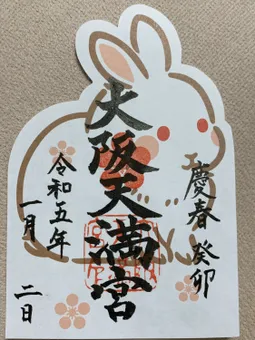 慶春 癸卯
大阪天満宮
令和五年
一月 二日